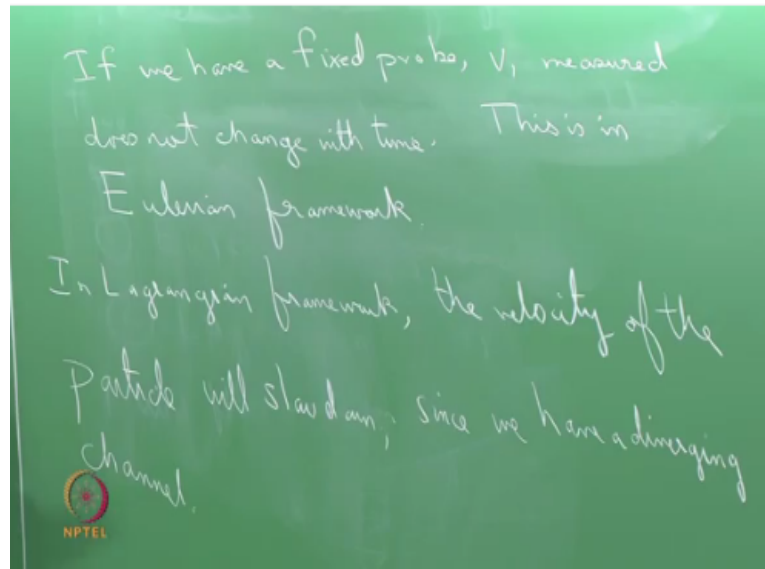 If we have a fixed probe, V, measured
does not change with time. This is in
Eulerian framework.
In Lagrangian framework, the velocity of the
Particle will slow down, since we have a diverging
channel.
NPTEL